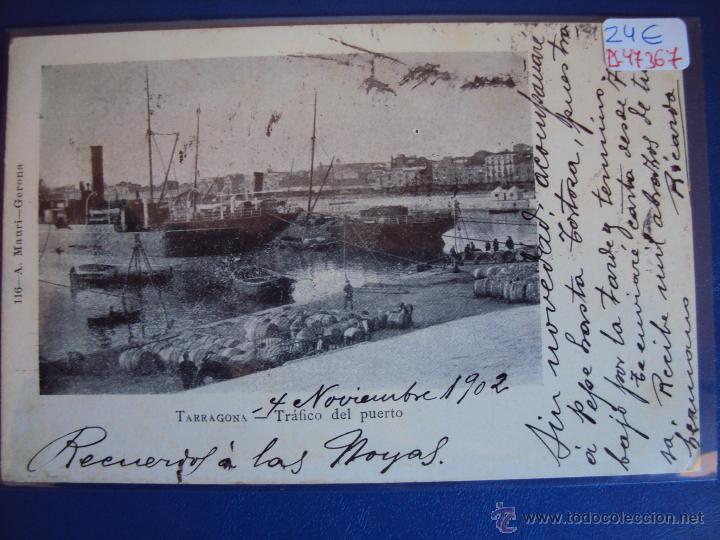 24€
47367
116—A. Mauri—Gerona
TARRAGONA — Tráfico del puerto
4 Noviembre 1902
Recuerdos á las Noyas.
Sin novedad, acompañaré
á Pepe hasta Tortosa, nuestra
bajó por la tarde y termino.
Te enviaré carta desde
Recibe mil abrazos de tu
hermano
Ricardo
www.todocoleccion.net